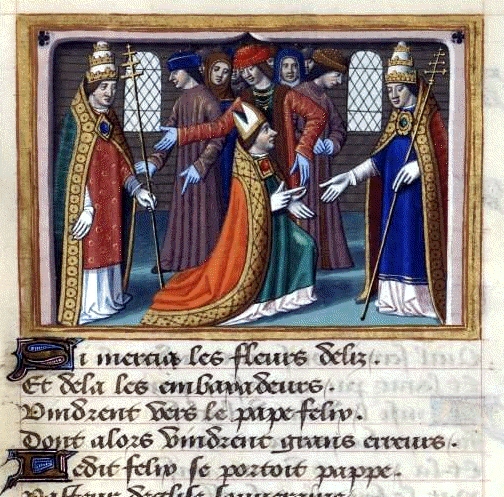 Si mercia les fleurs deliz.
Et dela les embaxadeurs.
Vindrent vers le pape felix.
Dont alors vindrent grans erreurs.
Ledit felix se portoit pappe.
Pasteur deglise souueraine